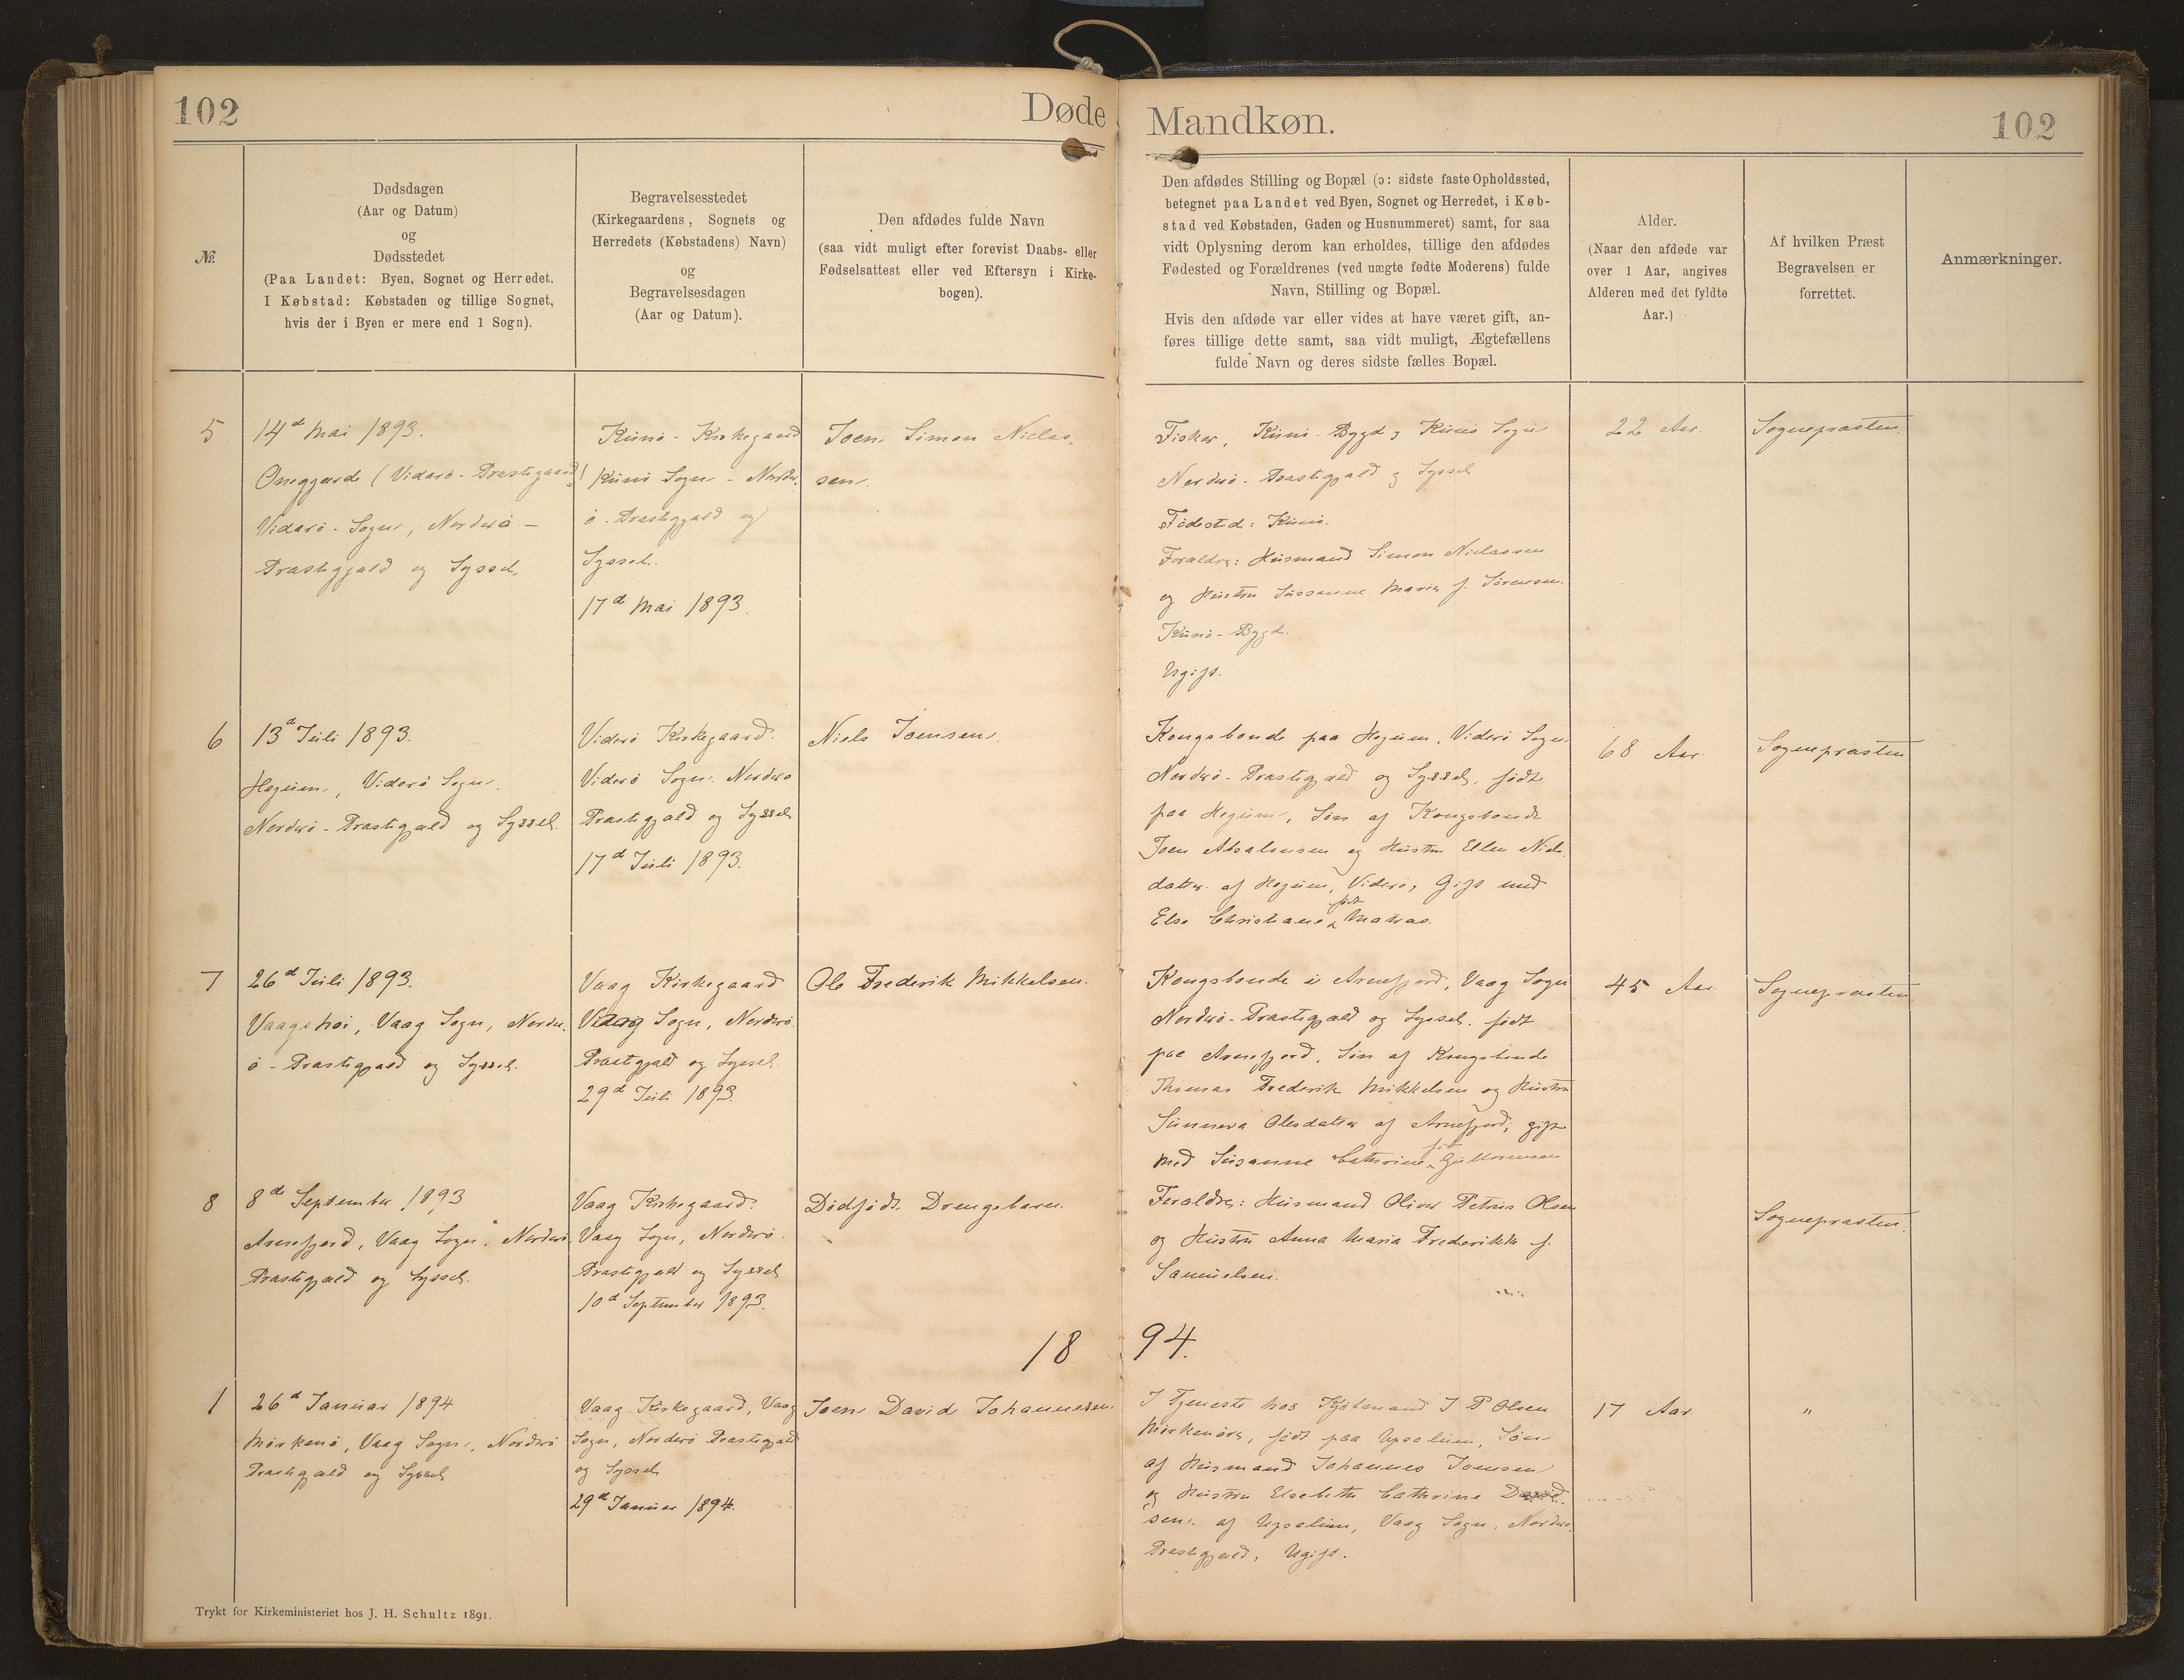 102
Døde
Mandkøn.
102
№.
Dødsdagen
(Aar og Datum)
og
Dødsstedet
(Paa Landet: Byen, Sognet og Herredet.
I Købstad: Købstaden og tillige Sognet,
hvis der i Byen er mere end 1 Sogn).
Begravelsesstedet
(Kirkegaardens, Sognets og
Herredets (Købstadens) Navn)
og
Begravelsesdagen
(Aar og Datum).
Den afdødes fulde Navn
(saa vidt muligt efter forevist Daabs- eller
Fødselsattest eller ved Eftersyn i Kirke-
bogen).
Den afdødes Stilling og Bopæl (ɔ: sidste faste Opholdssted,
betegnet paa Landet ved Byen, Sognet og Herredet, i Køb-
stad ved Købstaden, Gaden og Husnummeret) samt, for saa
vidt Oplysning derom kan erholdes, tillige den afdødes
Fødested og Forældrenes (ved uægte fødte Moderens) fulde
Navn, Stilling og Bopæl.
Hvis den afdøde var eller vides at have været gift, an-
føres tillige dette samt, saa vidt muligt, Ægtefællens
fulde Navn og deres sidste fælles Bopæl.
Alder.
(Naar den afdøde var
over 1 Aar, angives
Alderen med det fyldte
Aar.)
Af hvilken Præst
Begravelsen er
forrettet.
Anmærkninger.
5
14d Mai 1893.
Oneggjærde (Viderø-Præstegaard)
Viderø-Sogn, Norderø-
Præstegjæld og Syssel.
Kunø-Kirkegaard
Kunø Sogn - Norder-
ø-Præstegjæld og
Syssel.
17d Mai 1893.
Joen Simon Niclas-
sen.
Fisker, Kunø-Bygd, Kunø Sogn
Norderø-Præstegjæld og Syssel
Fødested: Kunø.
Forældre: Husmand Simon Niclassen
og Hustru Sussanne Maria f. Sørensen.
Kunø-Bygd.
Ugift.
22 Aar.
Sognepræsten.
6
13d Juli 1893.
Hegum, Viderø Sogn.
Norderø-Præstegjæld og Syssel.
Viderø Kirkegaard.
Viderø Sogn. Norderø
Præstegjæld og Syssel
17d Juli 1893.
Niels Joensen.
Kongsbonde paa Hegum, Viderø Sogn
Norderø-Præstegjæld og Syssel, født
paa Hegum, Søn af Kongsbonde
Joen Absalonsen og Hustru Ellen Niels-
datter af Hegum, Viderø, Gift med
Else Christiane født Matras.
68 Aar
Sognepræsten
7
26d Juli 1893.
Vaagshøi, Vaag Sogn, Norder-
ø-Præstegjæld og Syssel.
Vaag Kirkegaard
Vaag Sogn, Norderø
Præstegjæld og Syssel.
29d Juli 1893.
Ole Frederik Mikkelsen.
Kongsbonde i Arnefjord, Vaag Sogn
Norderø-Præstegjæld og Syssel. født
paa Arnefjord, Søn af Kongsbonde
Thomas Frederik Mikkelsen og Hustru
Sunneva Olesdatter af Arnefjord, gift
med Susanne Cathrine født Guttormsen
45 Aar.
Sognepræsten
8
8de September 1893
Arnefjord, Vaag Sogn. Norderø
Præstegjæld og Syssel.
Vaag Kirkegaard.
Vaag Sogn, Norderø.
Præstegjæld og Syssel
10d September 1893.
Dødfødt Drengebarn.
Forældre: Husmand Oliver Petrus Olsen
og Hustru Anna Maria Frederikke f.
Samuelsen.
Sognepræsten.
18
94.
1
26d Januar 1894
Mørkenø, Vaag Sogn, Norderø
Præstegjæld og Syssel
Vaag Kirkegaard, Vaag
Sogn, Norderø Præstegjæld
og Syssel
29d Januar 1894.
Joen David Johannesen
I Tjeneste hos Kjøbmand J P Olsen
Mørkenøre, født paa Upsalum, Søn
af Husmand Johannes Joensen
og Hustru Elsebeth Cathrine David-
sen af Upsalum, Vaag Sogn, Norderø
Præstegjæld, Ugift.
17 Aar
"
Trykt for Kirkeministeriet hos J. H. Schultz 1891.